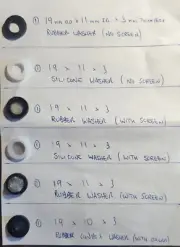 ① 19mm OD × 11mm ID × 3mm
RUBBER WASHER (NO SCREEN)
① 19 × 11 × 3
SILICONE WASHER (NO SCREEN)
① 19 × 11 × 3
RUBBER WASHER (WITH SCREEN)
① 19 × 11 × 3
SILICONE WASHER (WITH SCREEN)
① 19 × 11 × 3
RUBBER WASHER (WITH SCREEN)
① 19 × 10 × 3
RUBBER WASHER (WITH